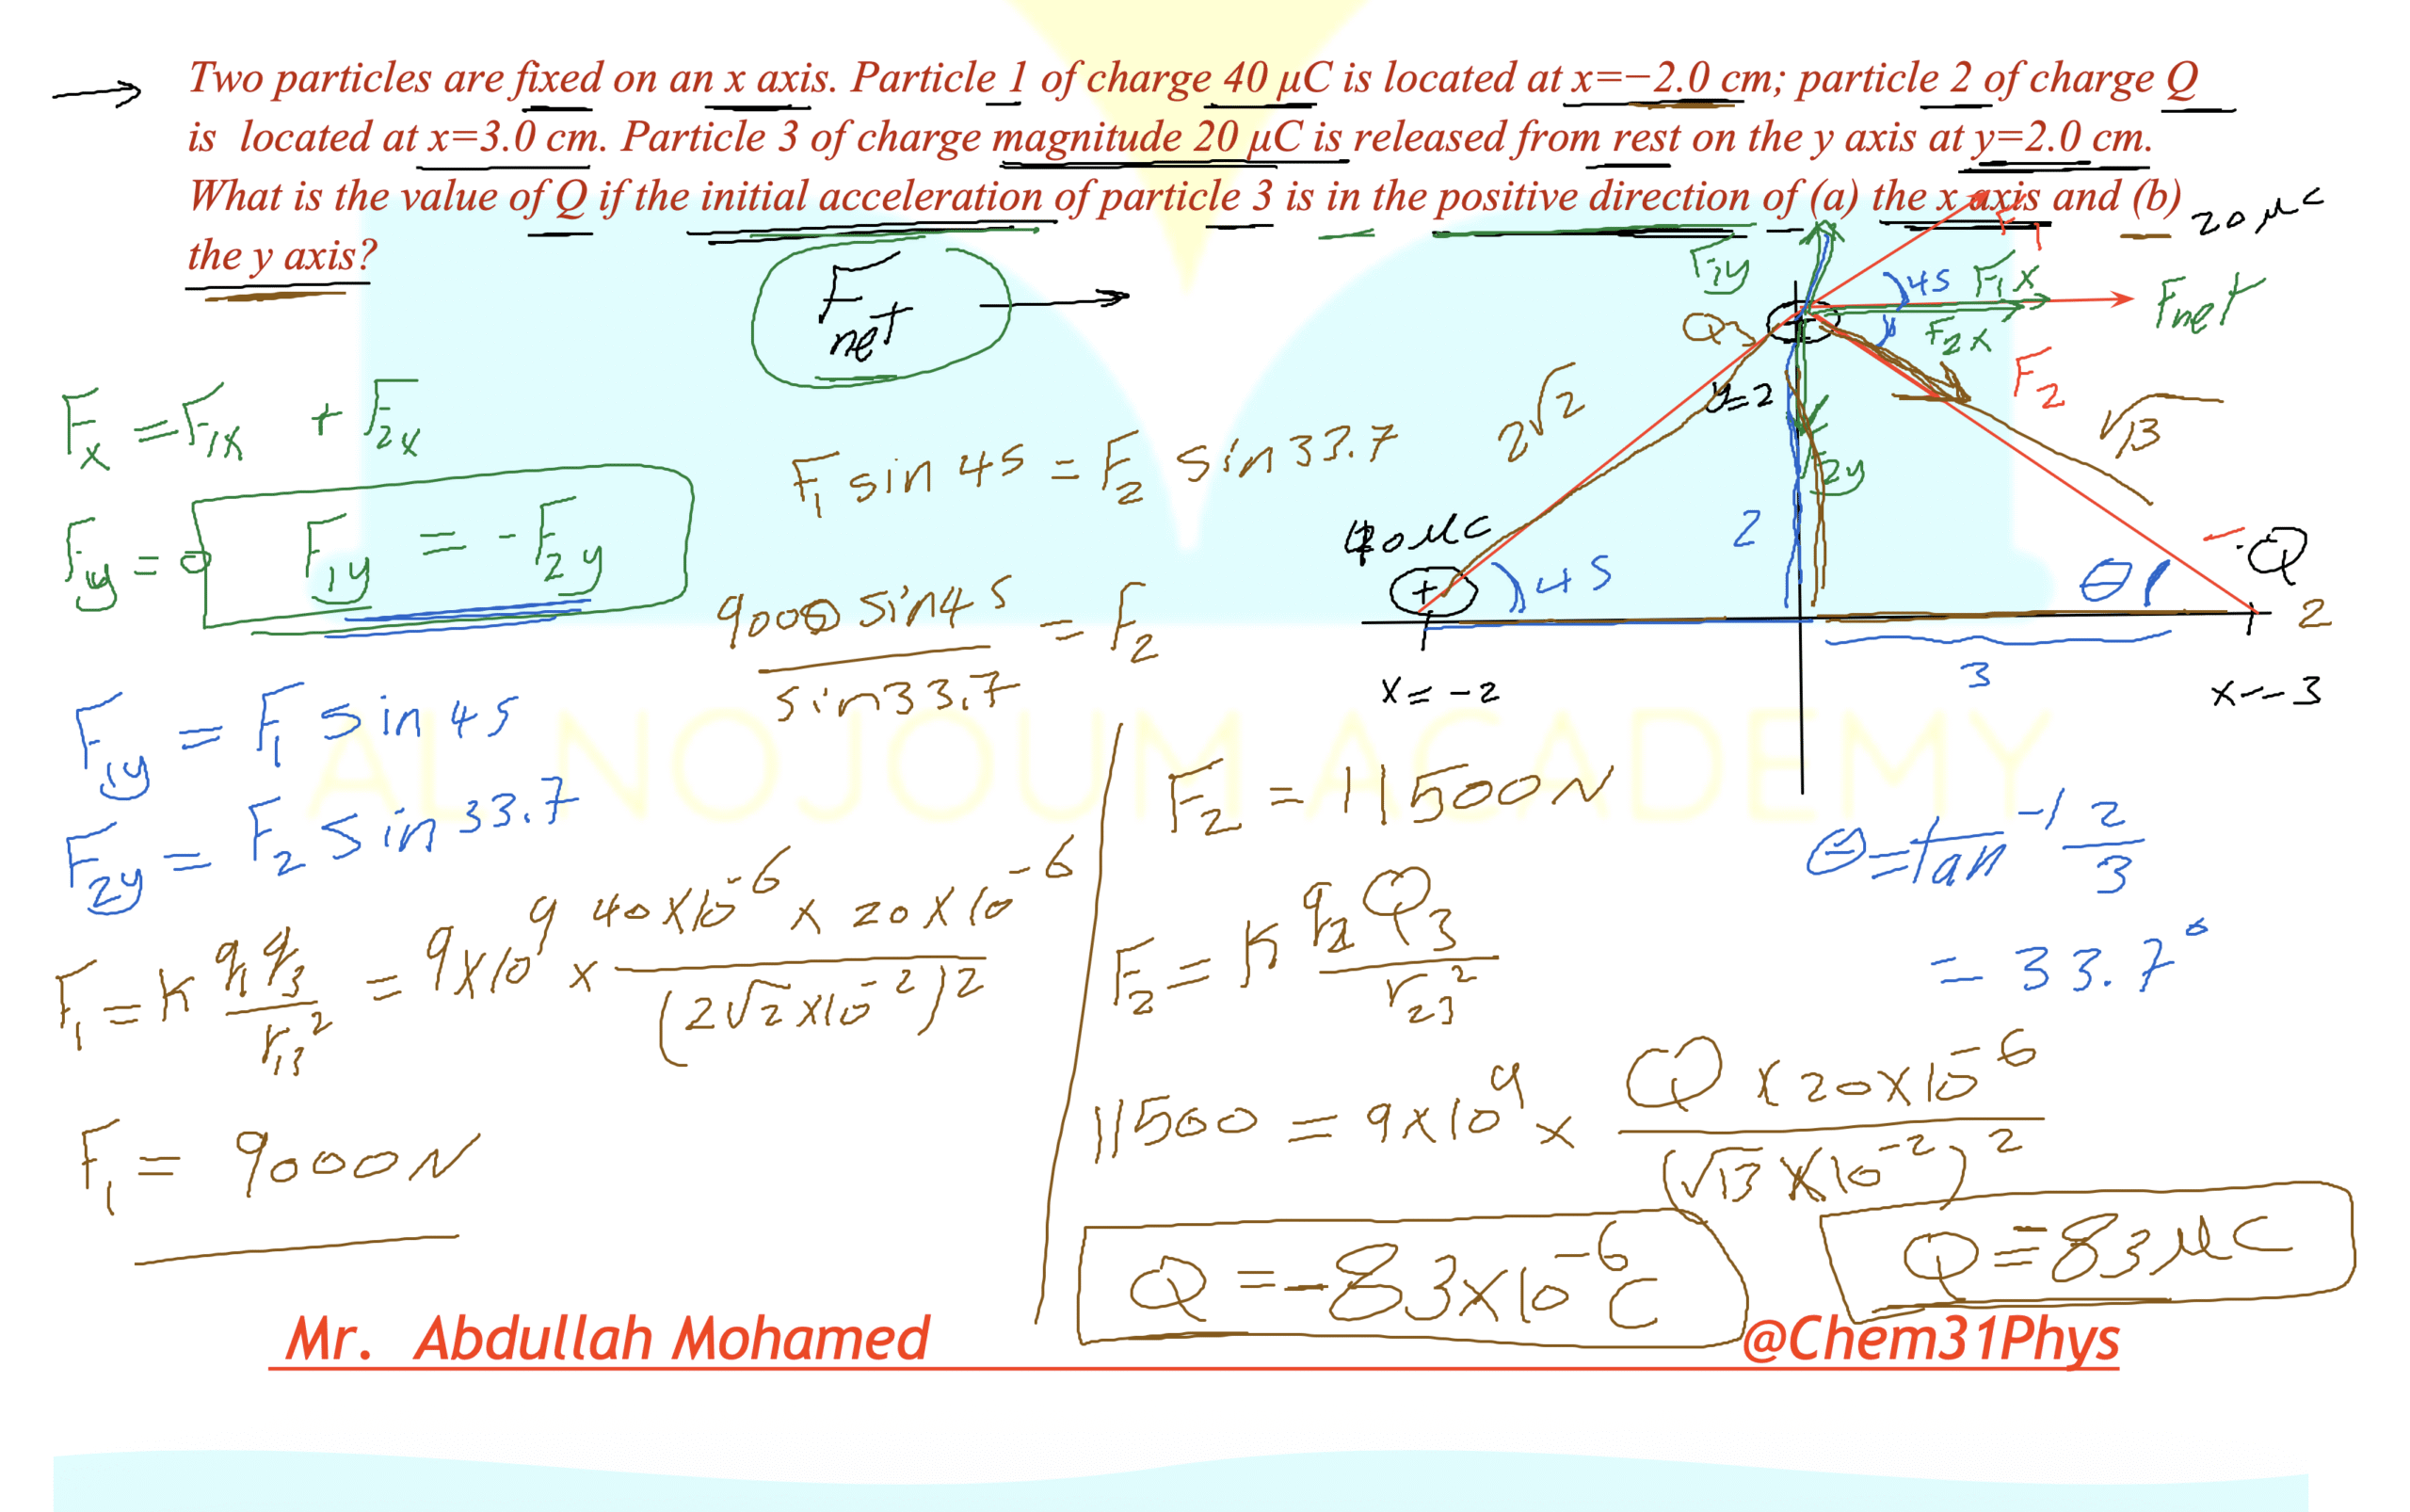 Two particles are fixed on an x axis. Particle 1 of charge 40 μC is located at x=−2.0 cm; particle 2 of charge Q
is located at x=3.0 cm. Particle 3 of charge magnitude 20 μC is released from rest on the y axis at y=2.0 cm.
What is the value of Q if the initial acceleration of particle 3 is in the positive direction of (a) the x axis and (b)
the y axis?
20 μC
F net
F1
F1y
45
F1x
Fnet
F2x
F2
Q
y=2
2√2
√13
F2y
2
40 μC
+
45
θ
-Q
2
3
x = -2
x--3
Fx = F1x + F2x
Fy = 0
F1y = -F2y
F1 sin 45 = F2 sin 33.7
9000 sin 45 / sin 33.7 = F2
F1y = F1 sin 45
F2y = F2 sin 33.7
F1 = K q1 q3 / r13² = 9×10⁹ × 40×10⁻⁶ × 20×10⁻⁶ / (2√2×10⁻²)²
F1 = 9000N
F2 = 11500N
F2 = K q2 Q3 / r23²
11500 = 9×10⁹ × Q × 20×10⁻⁶ / (√13 × 10⁻²)²
Q = -83×10⁻⁶ C
Q = 83 μC
θ = tan⁻¹ 2/3
= 33.7°
AL NOJOUM ACADEMY
Mr. Abdullah Mohamed
@Chem31Phys